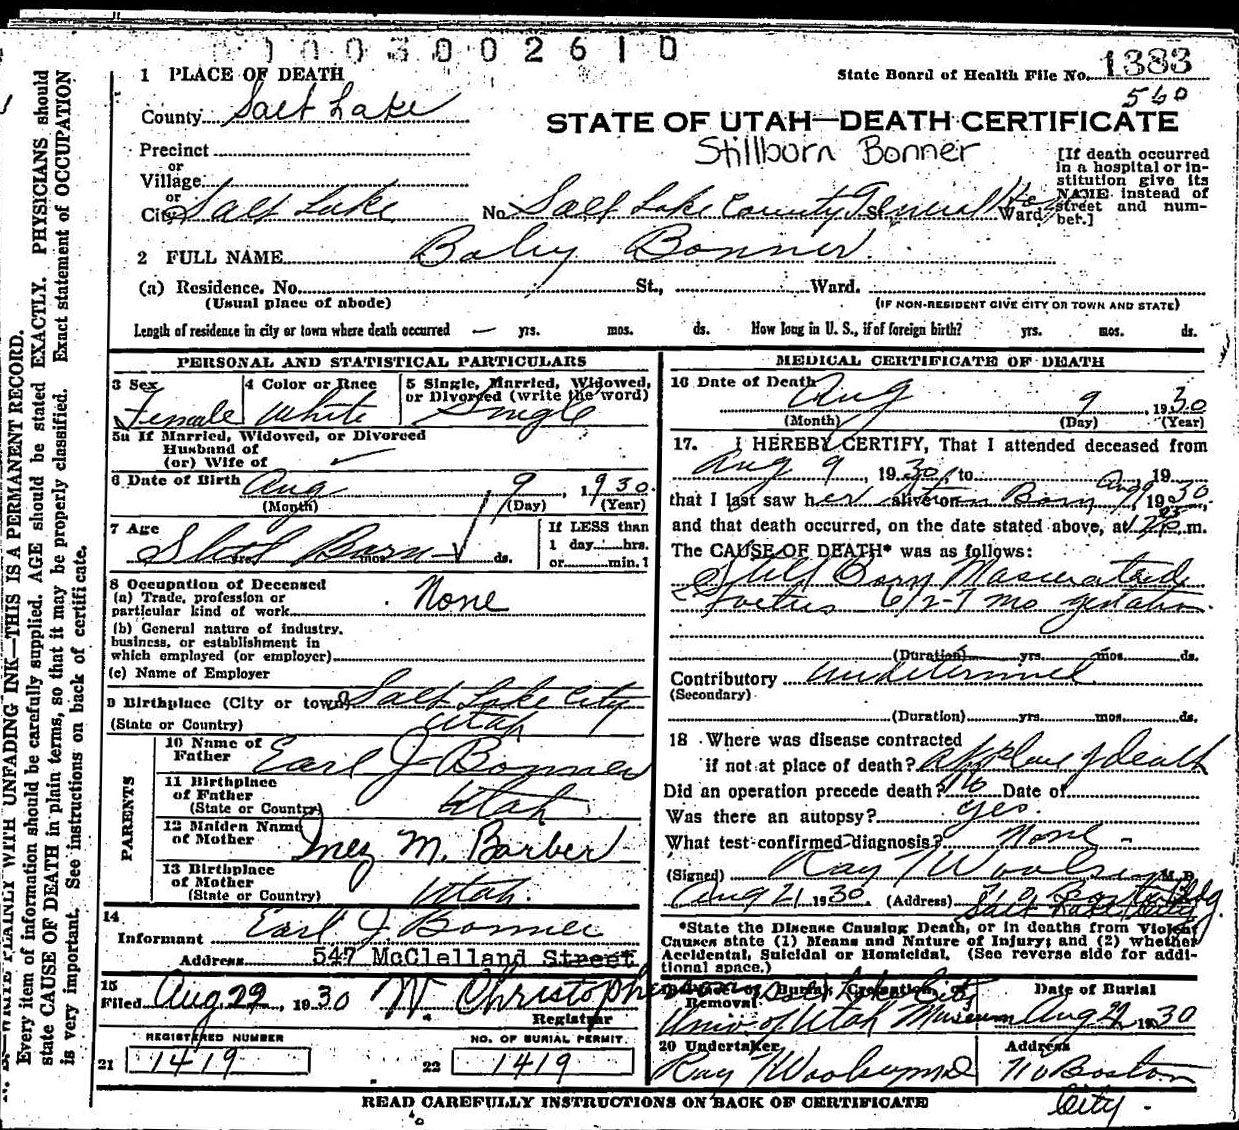 1003002610
1 PLACE OF DEATH
State Board of Health File No. 1383
560
County Salt Lake
STATE OF UTAH—DEATH CERTIFICATE
Stillborn Bonner
Precinct
or
Village
or
City Salt Lake No. Salt Lake County General Hos St. Ward
[If death occurred
in a hospital or in-
stitution give its
NAME instead of
street and num-
ber.]
2 FULL NAME Baby Bonner
(a) Residence. No. St., Ward.
(Usual place of abode) (IF NON-RESIDENT GIVE CITY OR TOWN AND STATE)
Length of residence in city or town where death occurred — yrs. mos. ds. How long in U. S., if of foreign birth? yrs. mos. ds.
PERSONAL AND STATISTICAL PARTICULARS
3 Sex Female
4 Color or Race White
5 Single, Married, Widowed,
or Divorced (write the word)
Single
5a If Married, Widowed, or Divorced
Husband of
(or) Wife of
6 Date of Birth Aug 9, 1930
(Month) (Day) (Year)
7 Age
Still Born
yrs. mos. ds.
If LESS than
1 day hrs.
or min.
8 Occupation of Deceased
(a) Trade, profession or
particular kind of work None
(b) General nature of industry,
business, or establishment in
which employed (or employer)
(c) Name of Employer
9 Birthplace (City or town) Salt Lake City
(State or Country) Utah
PARENTS
10 Name of
Father Earl J Bonner
11 Birthplace
of Father
(State or Country) Utah
12 Maiden Name
of Mother Inez M. Barber
13 Birthplace
of Mother
(State or Country) Utah.
14
Informant Earl J Bonner
Address 547 McClelland Street
15
Filed Aug 22, 1930 W Christopherson
Registrar
REGISTERED NUMBER
21 1419
NO. OF BURIAL PERMIT
22 1419
MEDICAL CERTIFICATE OF DEATH
16 Date of Death Aug 9, 1930
(Month) (Day) (Year)
17. I HEREBY CERTIFY, That I attended deceased from
Aug 9, 1930, to Aug 19
that I last saw her alive on Born 9, 1930,
and that death occurred, on the date stated above, at m.
The CAUSE OF DEATH* was as follows:
Still Born Mascerated
Foetus 6 1/2-7 mo gestation.
(Duration) yrs. mos. ds.
Contributory undetermined
(Secondary)
(Duration) yrs. mos. ds.
18 Where was disease contracted
if not at place of death? at place of death
Did an operation precede death? No Date of
Was there an autopsy? yes.
What test confirmed diagnosis? None -
(Signed) Ray T Woolsey M.D.
Aug 21 1930. (Address) 710 Boston Bldg
Salt Lake City
*State the Disease Causing Death, or in deaths from Violent
Causes state (1) Means and Nature of Injury; and (2) whether
Accidental, Suicidal or Homicidal. (See reverse side for addi-
tional space.)
Place of Burial, Cremation, or
Removal Salt Lake City
Univ of Utah Museum
Date of Burial
Aug 22 1930
20 Undertaker
Ray T Woolsey MD
Address
710 Boston
City.
READ CAREFULLY INSTRUCTIONS ON BACK OF CERTIFICATE
WRITE PLAINLY WITH UNFADING INK—THIS IS A PERMANENT RECORD.
Every item of information should be carefully supplied. AGE should be stated EXACTLY. PHYSICIANS should
state CAUSE OF DEATH in plain terms, so that it may be properly classified. Exact statement of OCCUPATION
is very important. See instructions on back of certificate.